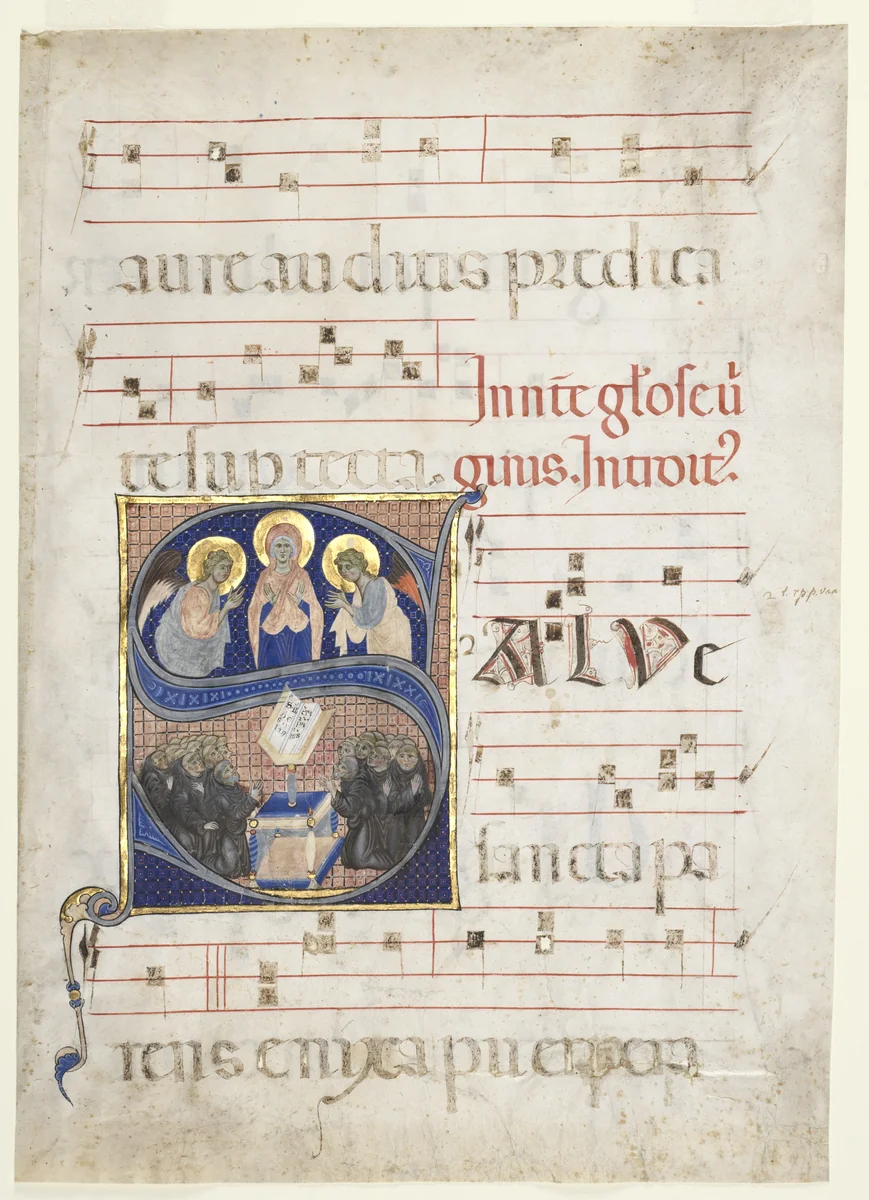 aure auditis predica
te sup tecta. In nr̄e gl'oſe ū
ginis. Introit'
SALVE
sancta pa
rens enyxa puerpera